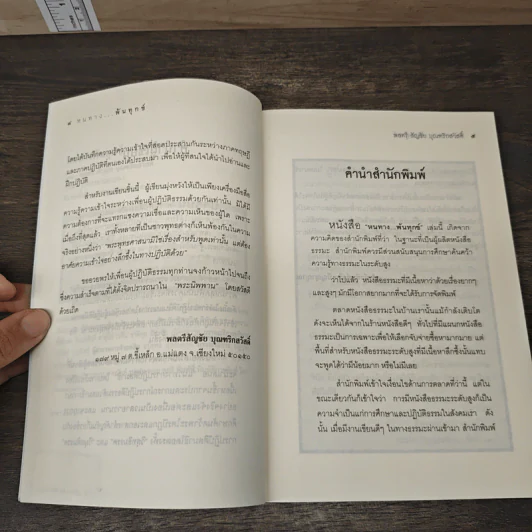 ๘ หนทาง...พ้นทุกข์
โดยได้บันทึกความรู้ความเข้าใจที่สอดประสานกันระหว่างภาคทฤษฎี
และภาคปฏิบัติที่ตนเองได้ประสบมา เพื่อให้ผู้ที่สนใจได้นำไปอ่านและ
ฝึกปฏิบัติ
สำหรับงานเขียนชิ้นนี้ ผู้เขียนมุ่งหวังให้เป็นเพียงเครื่องมือสื่อ
ความรู้ความเข้าใจระหว่างเพื่อนผู้ปฏิบัติธรรมด้วยกันเท่านั้น มิได้มี
ความต้องการที่จะแทรกแซงความเชื่อและความเห็นของผู้ใด เพราะ
เมื่อถึงที่สุดแล้ว เราทั้งหลายที่เป็นชาวพุทธต่างก็เห็นพ้องกันในความ
จริงอย่างหนึ่งว่า "พระพุทธศาสนามิใช่เรื่องสำหรับพูดเท่านั้น แต่ต้อง
อาศัยความเข้าใจอย่างลึกซึ้งในทางปฏิบัติด้วย"
ขออวยพรให้เพื่อนผู้ปฏิบัติธรรมทุกท่านจงก้าวหน้าไปจนถึง
ซึ่งความสำเร็จตามที่ได้ตั้งจิตปรารถนาใน "พระนิพพาน" โดยสวัสดี
ด้วยเถิด
พลตรีสัญชัย บุณฑริกสวัสดิ์
๑๘๙ หมู่ ๗ ต.ขี้เหล็ก อ.แม่แตง จ.เชียงใหม่ ๕๐๑๕๐
พลตรีสัญชัย บุณฑริกสวัสดิ์ ๙
คำนำสำนักพิมพ์
หนังสือ "หนทาง...พ้นทุกข์" เล่มนี้ เกิดจาก
ความคิดของสำนักพิมพ์ที่ว่า ในฐานะที่เป็นผู้ผลิตหนังสือ
ธรรมะ สำนักพิมพ์ควรมีส่วนสนับสนุนการศึกษาค้นคว้า
ความรู้ทางธรรมะในระดับสูง
ว่าไปแล้ว หนังสือธรรมะที่มีเนื้อหาว่าด้วยเรื่องยากๆ
และสูงๆ มักมีโอกาสยากมากที่จะได้รับการจัดพิมพ์
ตลาดหนังสือธรรมะในบ้านเรานั้นแม้กำลังเติบโต
ดังจะเห็นได้จากในร้านหนังสือดีๆ ทั่วไปที่มีแผนกหนังสือ
ธรรมะเป็นการเฉพาะเพื่อให้เลือกจับจ่ายซื้อหามากมาย แต่
พื้นที่สำหรับหนังสือธรรมะระดับสูงที่มีเนื้อหาลึกซึ้งนั้นแทบ
จะพูดได้ว่ามีน้อยมาก หรือไม่มีเลย
สำนักพิมพ์เข้าใจเงื่อนไขด้านการตลาดที่ว่านี้ แต่ใน
ขณะเดียวกันก็เข้าใจว่า การมีหนังสือธรรมะระดับสูงก็เป็น
ความจำเป็นแก่การศึกษาและปฏิบัติธรรมในสังคมเรา ดัง
นั้น เมื่อมีงานเขียนดีๆ ในทางธรรมะผ่านเข้ามา สำนักพิมพ์